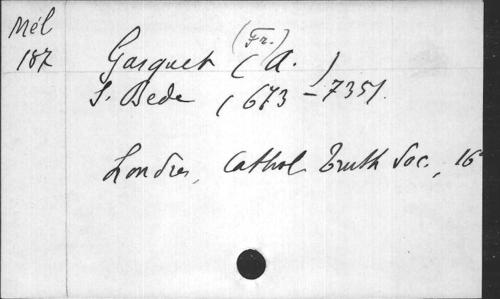 Mél
187
Gasquet (Fr.) (A.)
S. Bede (673-735).
Londres, Cathol Truth Soc., 16°